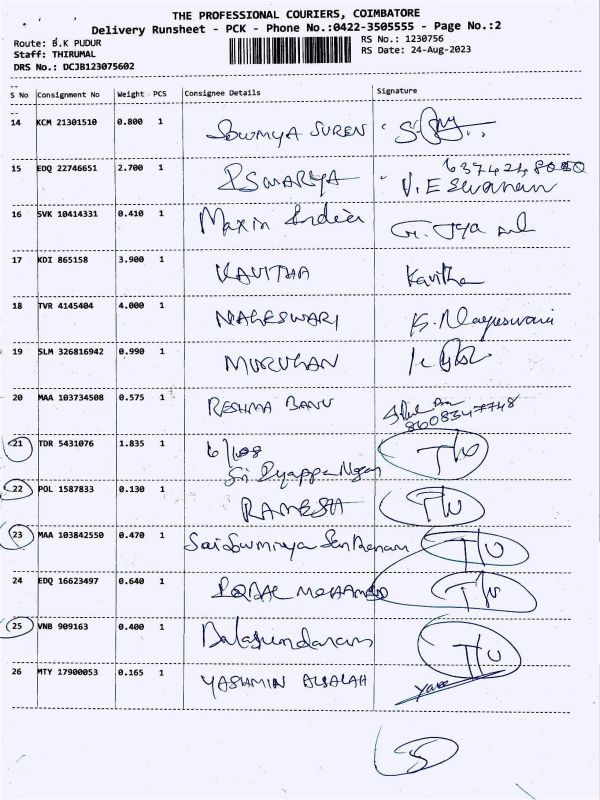 THE PROFESSIONAL COURIERS, COIMBATORE
Delivery Runsheet - PCK - Phone No.:0422-3505555 - Page No.:2
Route: B.K PUDUR
RS No.: 1230756
Staff: THIRUMAL
RS Date: 24-Aug-2023
DRS No.: DCJB123075602
S No Consignment No Weight PCS Consignee Details Signature
14 KCM 21301510 0.800 1 SOWMYA SUREN
15 EDQ 22746651 2.700 1 V.ESwaran
16 SVK 10414331 0.410 1 Maxin India
17 KDI 865158 3.900 1 KAVITHA Kavitha
18 TVR 4145404 4.000 1 MAHESWARI K. Mageswari
19 SLM 326816942 0.990 1 MURUGAN
20 MAA 103734508 0.575 1 RESHMA BANU
8608347748
21 TDR 5431076 1.835 1 6/108
Sri
22 POL 1587833 0.130 1 RAMESH
23 MAA 103842550 0.470 1
24 EDQ 16623497 0.640 1 IQBAL MOHAMMED
25 VNB 909163 0.400 1 Balasundaram
26 MTY 17900053 0.165 1 YASHMIN
5